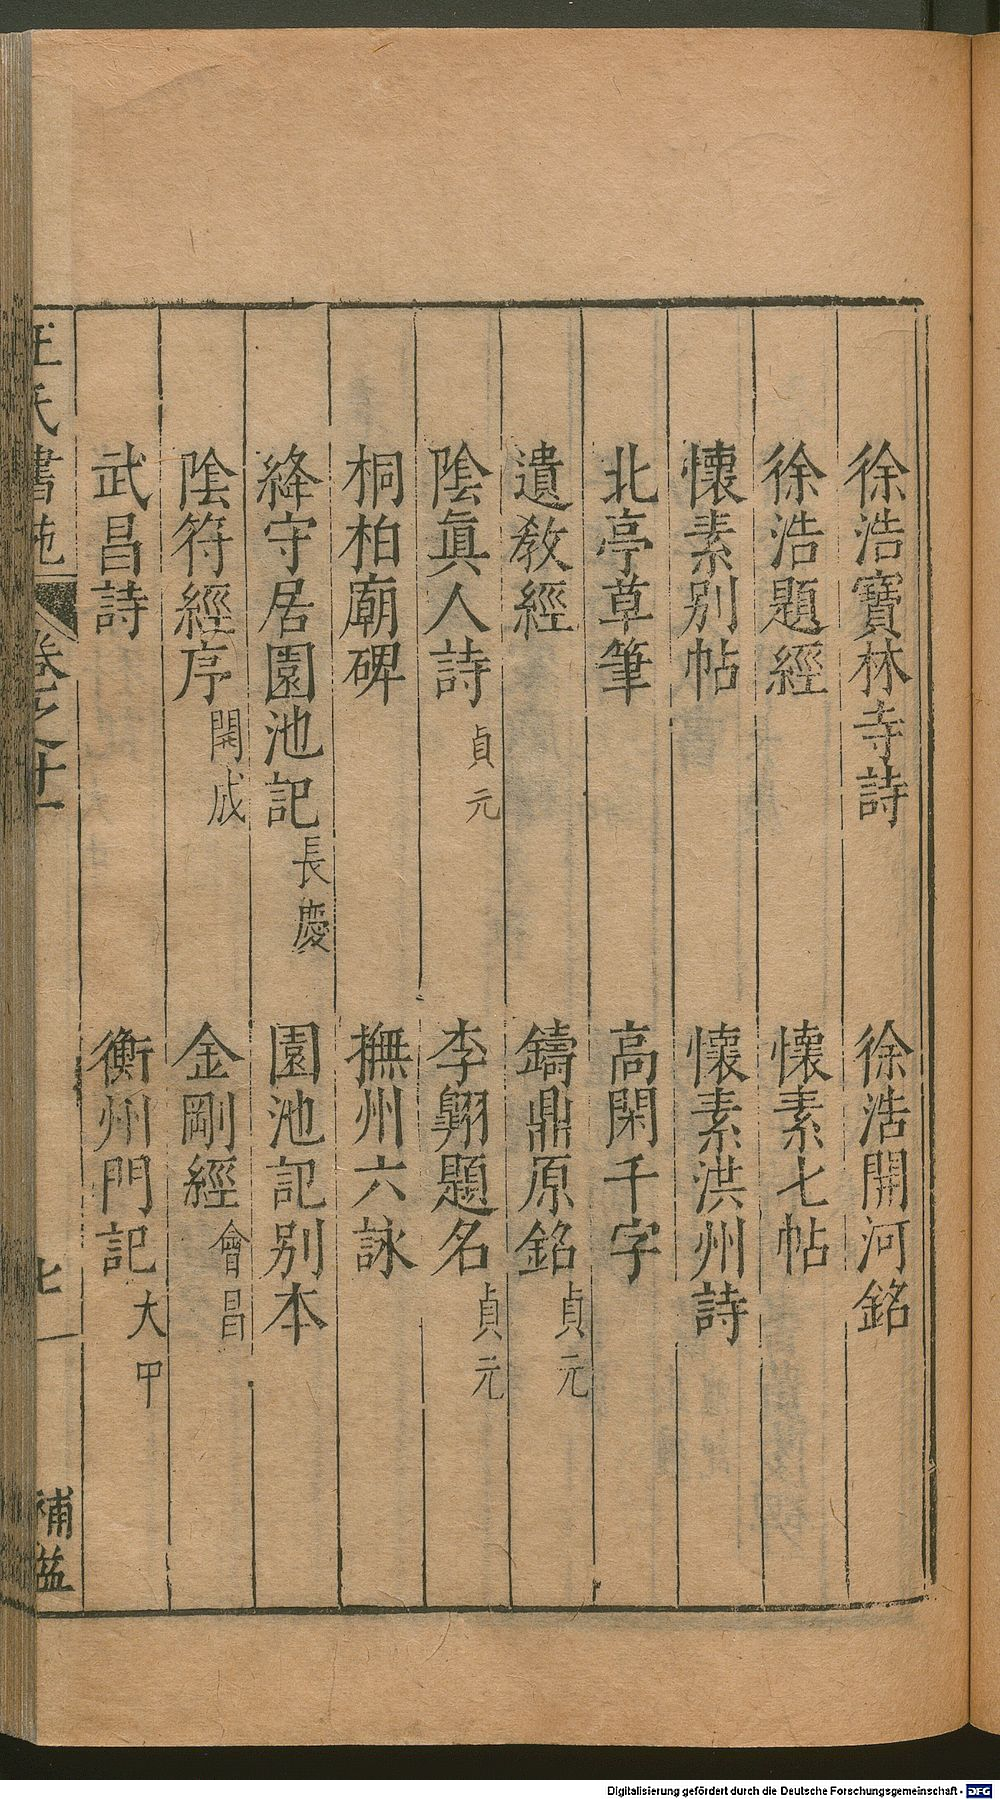 徐浩寶林寺詩　徐浩開河銘
徐浩題經　懷素七帖
懷素别帖　懷素洪州詩
北亭草筆　高閑千字
遺敎經　鑄鼎原銘貞元
陰眞人詩貞元　李翺題名貞元
桐柏廟碑　撫州六詠
絳守居園池記長慶　園池記别本
陰符經序開成　金剛經會昌
武昌詩　衡州門記大甲
王氏書苑　卷之十一　七　補益
Digitalisierung gefördert durch die Deutsche Forschungsgemeinschaft - DFG